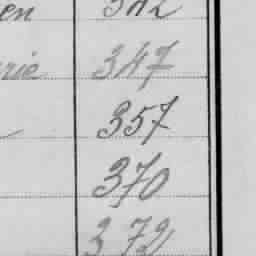 en 342
rie 347
357
370
372